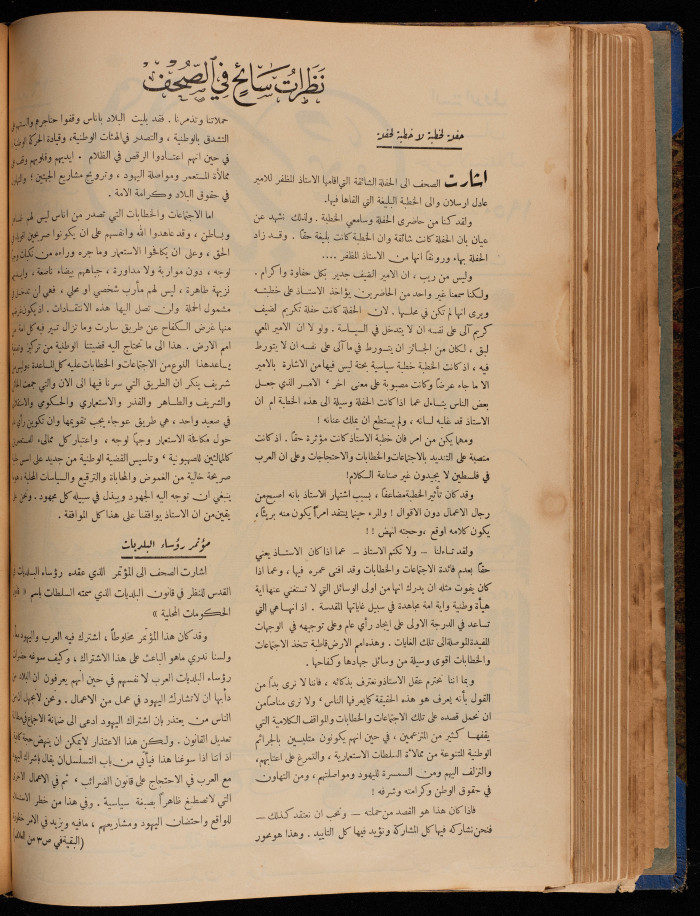 نظرات سائح في الصحف
حفلة لخطبة لا خطبة لحفلة
اشارت الصحف الى الحفلة الشائقة التي اقامها الاستاذ المظفر للامير
عادل ارسلان والى الخطبة البليغة التي القاها فيها.
ولقد كنا من حاضرى الحفلة وسامعي الخطبة . ولذلك نشهد عن
عيان بان الحفلة كانت شائقة وان الخطبة كانت بليغة حقا . وقد زاد
الحفلة بهاء ورونقا انها من الاستاذ المظفر ....
وليس من ريب ، ان الامير الضيف جدير بكل حفاوة واكرام .
ولكنا سمعنا غير واحد من الحاضرين يؤاخذ الاستاذ على خطبته
ويرى انها لم تكن في محلها . لان الحفلة كانت حفلة تكريم لضيف
كريم آلى على نفسه ان لا يتدخل في السياسة . ولو لا ان الامير المعي
لبق ، لكان من الجائز ان يتورط في ما آلى على نفسه ان لا يتورط
فيه ، اذ كانت الخطبة خطبة سياسية بحتة ليس فيها من الاشارة بالامير
الا ما جاء عرضا وكانت مصبوبة على معنى اخر ' الامر الذي جعل
بعض الناس يتساءل عما اذا كانت الحفلة وسيلة الى هذه الخطبة ام ان
الاستاذ قد غلبه لسانه ، ولم يستطع ان يملك عنانه !
ومهما يكن من امر فان خطبة الاستاذ كانت مؤثرة حقا . اذ كانت
منصبة على التنديد بالاجتماعات والخطابات والاحتجاجات وعلى ان العرب
في فلسطين لا يجيدون غير صناعة الكلام !
وقد كان تأثير الخطبة مضاعفا ، بسبب اشتهار الاستاذ بانه اصبح من
رجال الاعمال دون الاقوال ! والمرء حينما ينتقد امراً يكون منه بريئاً ،
يكون كلامه اوقع ، وحجته انهض ! !
ولقد تساءلنا — ولا نكتم الاستاذ — عما اذا كان الاستاذ يعني
حقا بعدم فائدة الاجتماعات والخطابات وقد افنى عمره فيها ، وعما اذا
كان يفوت مثله ان يدرك انها من اولى الوسائل التي لا تستغني عنها اية
هيأة وطنية واية امة مجاهدة في سبيل غاياتها المقدسة . اذ انها هي التي
تساعد في الدرجة الاولى على ايجاد رأي عام وعلى توجيهه في الوجهات
المفيدة الموصلة الى تلك الغايات . وهذه امم الارض قاطبة تتخذ الاجتماعات
والخطابات اقوى وسيلة من وسائل جهادها وكفاحها .
وبما اننا نحترم عقل الاستاذ ونعترف بذكائه ، فاننا لا نرى بداً من
القول بأنه يعرف هو هذه الحقيقة كما يعرفها الناس ' ولا نرى مناصا من
ان نحمل قصده على تلك الاجتماعات والخطابات والمواقف الكلامية التي
يقفها كثير من المتزعمين ، في حين انهم يكونون متلبسين بالجرائم
الوطنية المتنوعة من ممالأة السلطات الاستعمارية ، والتمرغ على اعتابهم ،
والتزلف اليهم ومن السمسرة لليهود ومواصلتهم ، ومن التهاون
في حقوق الوطن وكرامته وشرفه !
فاذا كان هذا هو القصد من حملته — ونحب ان نعتقد كذلك —
فنحن نشاركه فيها كل المشاركة ونؤيد فيها كل التاييد . وهذا هو محور
حملاتنا وتذمرنا . فقد بليت البلاد باناس وقفوا حناجرهم
التشدق بالوطنية ، والتصدر في الهيئات الوطنية ، وقيادة الحركة
في حين انهم اعتادوا الرقص في الظلام . ايديهم وقلوبهم
ممالأة المستعمر ومواصلة اليهود ، وترويج مشاريع الجهتين !
في حقوق البلاد وكرامة الامة .
اما الاجتماعات والخطابات التي تصدر من اناس ليس لهم
وباطن ، وقد عاهدوا الله وانفسهم على ان يكونوا صريحين
الحق ، وعلى ان يكافحوا الاستعمار وما جره وراءه من نكبات
لوجه ، دون مواربة ولا مداورة ، جباههم بيضاء ناصعة ،
نزيهة طاهرة ، ليس لهم مأرب شخصي او محلي ، فهي ان تدخل
مشمول الحملة ولن تصل اليها هذه الانتقادات . اذ يكون
منها غرض الكفاح عن طريق سارت وما تزال تسير فيه كل
امم الارض . هذا الى ما تحتاج اليه قضيتنا الوطنية من تركيز
يساعد هذا النوع من الاجتماعات والخطابات عليه كل المساعدة
شريف ينكر ان الطريق التي سرنا فيها الى الان والتي جمعت
والشريف والطاهر والقذر والاستعماري والحكومي
في صعيد واحد ، هي طريق عوجاء يجب تقويمها وان تكوين رأي
حول مكافحة الاستعمار وجهاً لوجه ، واعتبار كل ممالىء
كالممالئين للصهيونية ' وتأسيس القضية الوطنية من جديد على
صريحة خالية من الغموض والمحاباة والترقيع والسياسات المحلية ،
ينبغي ان توجه اليه الجهود ويبذل في سبيله كل مجهود . ونحن
يقين من ان الاستاذ يوافقنا على هذا كل الموافقة .
مؤتمر رؤساء البلديات
اشارت الصحف الى المؤتمر الذي عقده رؤساء البلديات في
القدس للنظر في قانون البلديات الذي سمته السلطات باسم «
الحكومات المحلية »
وقد كان هذا المؤتمر مخلوطا ، اشترك فيه العرب واليهود
ولسنا ندري ما هو الباعث على هذا الاشتراك ، وكيف سوغه
رؤساء البلديات العرب لانفسهم في حين انهم يعرفون ان البلاد
دأبها ان لا تشارك اليهود في عمل من الاعمال . ونحن لا نجهل
الناس من يعتذر بان اشتراك اليهود ادعى الى ضمانة الاجماع في
تعديل القانون . ولكن هذا الاعتذار لا يمكن ان ينهض حجة
اذ اننا اذا سوغنا هذا فيأتي من باب التسلسل ان يقال باشراك اليهود
مع العرب في الاحتجاج على قانون الضرائب ' ثم في الاعمال
التي لا تصطبغ ظاهراً بصبغة سياسية . وفي هذا من خطر
للواقع واحتضان اليهود ومشاريعهم ، مافيه ويزيد في الامر
(البقية في ص ٣ من